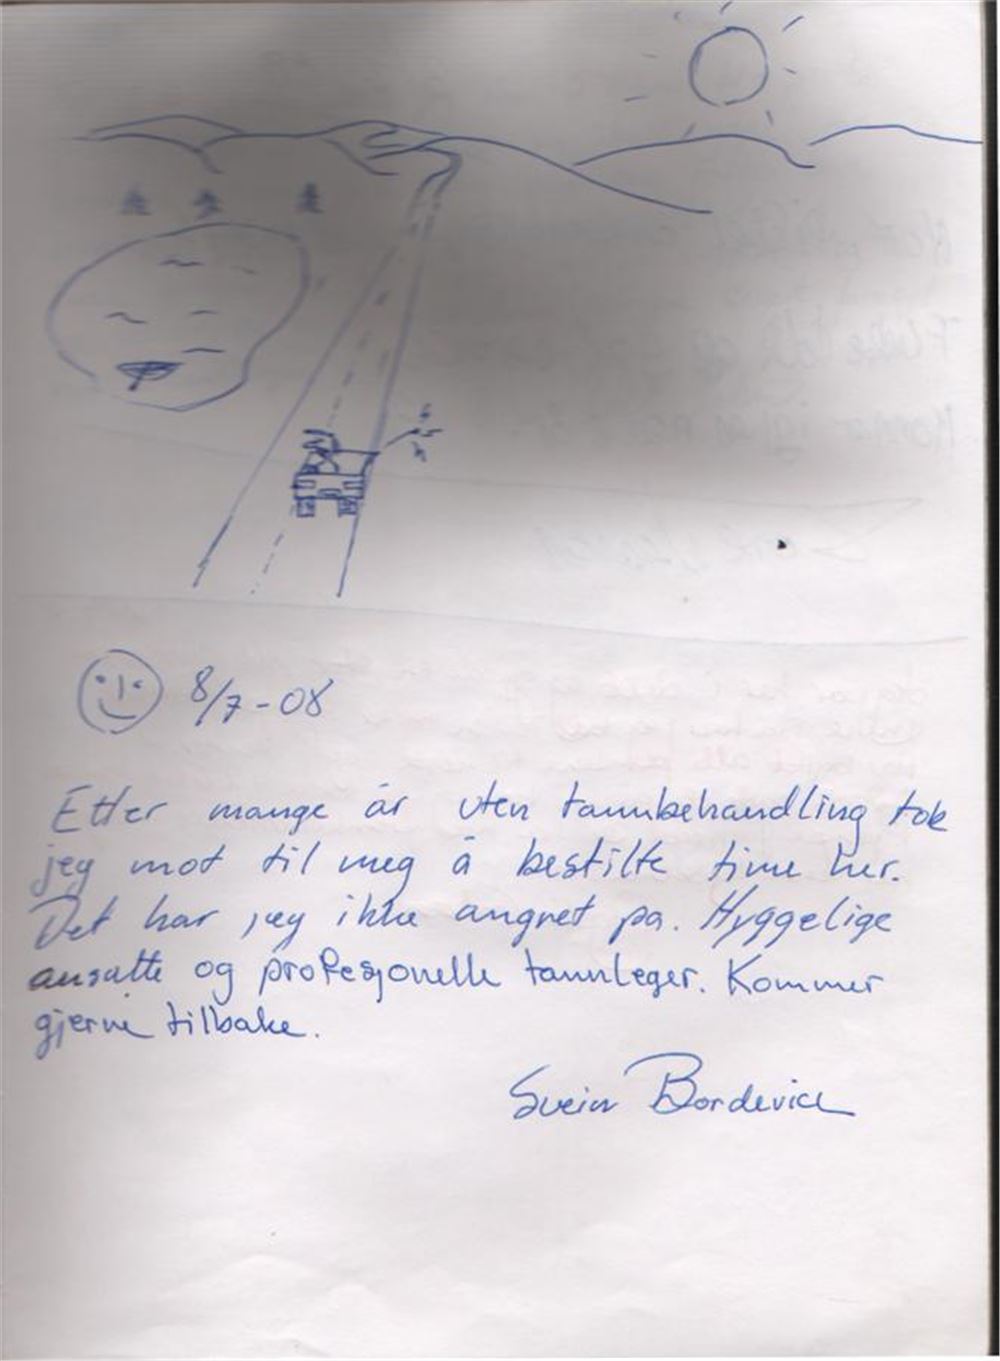 8/7-08
Etter mange år uten tannbehandling tok
jeg mot til meg å bestilte time her.
Det har jeg ikke angret på. Hyggelige
ansatte og profesjonelle tannleger. Kommer
gjerne tilbake.
Svein Bordevick